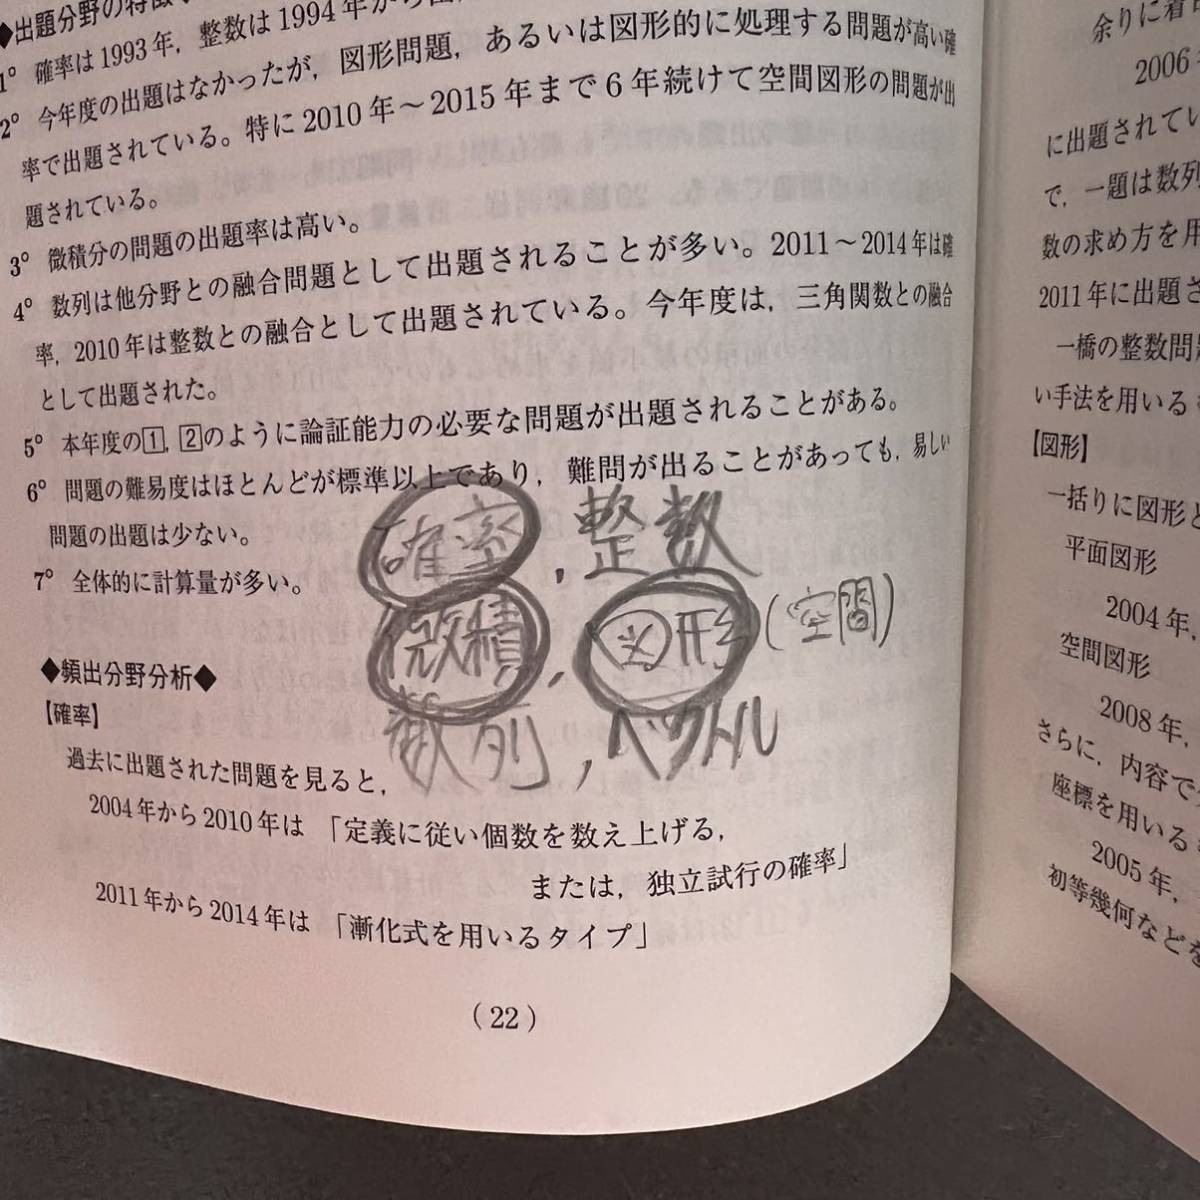 ◆出題分野の特徴
1° 確率は1993年，整数は1994年から出
2° 今年度の出題はなかったが，図形問題，あるいは図形的に処理する問題が高い確
率で出題されている。特に2010年～2015年まで6年続けて空間図形の問題が出
題されている。
3° 微積分の問題の出題率は高い。
4° 数列は他分野との融合問題として出題されることが多い。2011～2014年は確
率，2010年は整数との融合として出題されている。今年度は，三角関数との融合
として出題された。
5° 本年度の1，2のように論証能力の必要な問題が出題されることがある。
6° 問題の難易度はほとんどが標準以上であり，難問が出ることがあっても，易しい
問題の出題は少ない。
7° 全体的に計算量が多い。
確率，整数
微積，図形(空間)
数列，ベクトル
◆頻出分野分析◆
【確率】
過去に出題された問題を見ると，
2004年から2010年は「定義に従い個数を数え上げる，
または，独立試行の確率」
2011年から2014年は「漸化式を用いるタイプ」
(22)
余りに着
2006
に出題されてい
で，一題は数列
数の求め方を用
2011年に出題さ
一橋の整数問題
い手法を用いる
【図形】
一括りに図形と
平面図形
2004年，
空間図形
2008年，
さらに，内容で
座標を用いる
2005年，
初等幾何などを